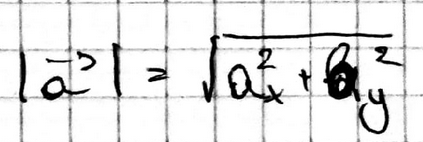 |a⃗| = √(aₓ² + a_y²)